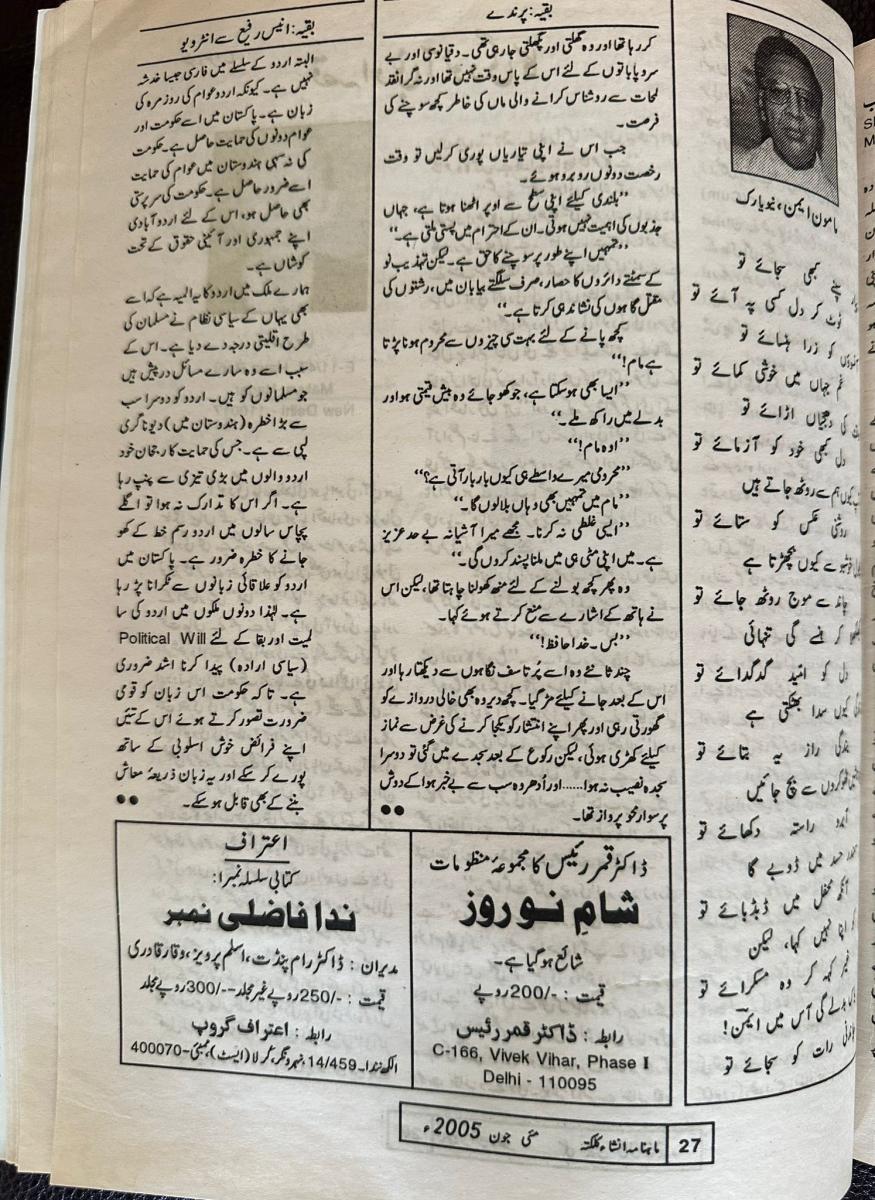 مامون ایمن، نیویارک
کبھی سجائے تو
ٹوٹ کر دل کسی پہ آئے تو
کو ذرا ہنسائے تو
غم جہاں میں خوشی کمائے تو
کی دھجیاں اڑائے تو
دل کبھی خود کو آزمائے تو
کیوں ہم سے روٹھ جاتے ہیں
روشنی عکس کو ستائے تو
سے کیوں بچھڑتا ہے
چاند سے موج روٹھ جائے تو
کر ہنسے گی تنہائی
دل کو امید گدگدائے تو
کیوں سدا بھٹکتی ہے
بندگی راز یہ بتائے تو
ٹھوکروں سے بچ جائیں
راستہ دکھائے تو
حسد میں ڈوبے گا
آنکھ محفل میں ڈبڈبائے تو
اپنا نہیں کہا، لیکن
غیر کہہ کر وہ مسکرائے تو
بدلے گی آس میں ایمنؔ!
رات کو سجائے تو
بقیہ: پرندے
کر رہا تھا اور وہ گھلتی اور پگھلتی جا رہی تھی۔ دقیانوسی اور بے
سر و پا باتوں کے لئے اس کے پاس وقت نہیں تھا اور نہ گرانقذ
لمحات سے روشناس کرانے والی ماں کی خاطر کچھ سوچنے کی
فرصت۔
جب اس نے اپنی تیاریاں پوری کرلیں تو وقت
رخصت دونوں روبرو ہوئے۔
”بلندی کیلئے اپنی سطح سے اوپر اٹھنا ہوتا ہے، جہاں
جذبوں کی اہمیت نہیں ہوتی۔ ان کے احترام میں پستی ملتی ہے۔“
”تمہیں اپنے طور پر سوچنے کا حق ہے۔ لیکن تہذیب نو
کے سمٹتے دائروں کا حصار، صرف سلگتے بیابان میں، رشتوں کی
مقتل گاہوں کی نشاندہی کرتا ہے۔“
کچھ پانے کے لئے بہت سی چیزوں سے محروم ہونا پڑتا
ہے مام!“
”ایسا بھی ہو سکتا ہے، جو کھو جائے وہ بیش قیمتی ہو اور
بدلے میں راکھ ملے۔“
”اوہ مام!“
”محرومی میرے واسطے ہی کیوں بار بار آتی ہے؟“
”مام میں تمہیں بھی وہاں بلالوں گا۔“
”ایسی غلطی نہ کرنا۔ مجھے میرا آشیانہ بے حد عزیز
ہے۔ میں اپنی مٹی ہی میں ملنا پسند کروں گی۔“
وہ پھر کچھ بولنے کے لئے منھ کھولنا چاہتا تھا، لیکن اس
نے ہاتھ کے اشارے سے منع کرتے ہوئے کہا۔
”بس۔ خدا حافظ!“
چند ثانئے وہ اسے پُرتاسف نگاہوں سے دیکھتا رہا اور
اس کے بعد جانے کیلئے مڑ گیا۔ کچھ دیر وہ بھی خالی دروازے کو
گھورتی رہی اور پھر اپنے انتشار کو یکجا کرنے کی غرض سے نماز
کیلئے کھڑی ہوئی، لیکن رکوع کے بعد سجدے میں گئی تو دوسرا
سجدہ نصیب نہ ہوا......اور اُدھر وہ سب سے بے خبر ہوا کے دوش
پر سوار محو پرواز تھا۔ ●●
بقیہ: انیس رفیع سے انٹرویو
البتہ اردو کے سلسلے میں فارسی جیسا خدشہ
نہیں ہے۔ کیونکہ اردو عوام کی روز مرہ کی
زبان ہے۔ پاکستان میں اسے حکومت اور
عوام دونوں کی حمایت حاصل ہے۔ حکومت
کی نہ سہی ہندوستان میں عوام کی حمایت
اسے ضرور حاصل ہے۔ حکومت کی سرپرستی
بھی حاصل ہو، اس کے لئے اردو آبادی
اپنے جمہوری اور آئینی حقوق کے تحت
کوشاں ہے۔
ہمارے ملک میں اردو کا یہ المیہ ہے کہ اسے
بھی یہاں کے سیاسی نظام نے مسلمان کی
طرح اقلیتی درجہ دے دیا ہے۔ اس کے
سبب اسے وہ سارے مسائل درپیش ہیں
جو مسلمانوں کو ہیں۔ اردو کو دوسرا سب
سے بڑا خطرہ (ہندوستان میں) دیوناگری
لپی سے ہے۔ جس کی حمایت کا رجحان خود
اردو والوں میں بڑی تیزی سے پنپ رہا
ہے۔ اگر اس کا تدارک نہ ہوا تو اگلے
پچاس سالوں میں اردو رسم خط کے کھو
جانے کا خطرہ ضرور ہے۔ پاکستان میں
اردو کو علاقائی زبانوں سے ٹکرانا پڑ رہا
ہے۔ لہٰذا دونوں ملکوں میں اردو کی سا
لمیت اور بقا کے لئے Political Will
(سیاسی ارادہ) پیدا کرنا اشد ضروری
ہے۔ تاکہ حکومت اس زبان کو قومی
ضرورت تصور کرتے ہوئے اس کے تئیں
اپنے فرائض خوش اسلوبی کے ساتھ
پورے کر سکے اور یہ زبان ذریعۂ معاش
بننے کے بھی قابل ہو سکے۔ ●●
ڈاکٹر قمر رئیس کا مجموعۂ منظومات
شامِ نوروز
شائع ہو گیا ہے۔
قیمت : -/200 روپے
رابطہ : ڈاکٹر قمر رئیس
C-166, Vivek Vihar, Phase I
Delhi - 110095
اعتراف
کتابی سلسلہ نمبر ۱:
ندا فاضلی نمبر
مدیران : ڈاکٹر رام پنڈت، اسلم پرویز، وقار قادری
قیمت : -/250 روپے غیر مجلد--/300 روپے مجلد
رابطہ : اعتراف گروپ
الکھ نندا۔ 14/459، نہرو نگر، کرلا (ایسٹ)، ممبئی-400070
27 ماہنامہ انشاء کلکتہ مئی جون 2005ء